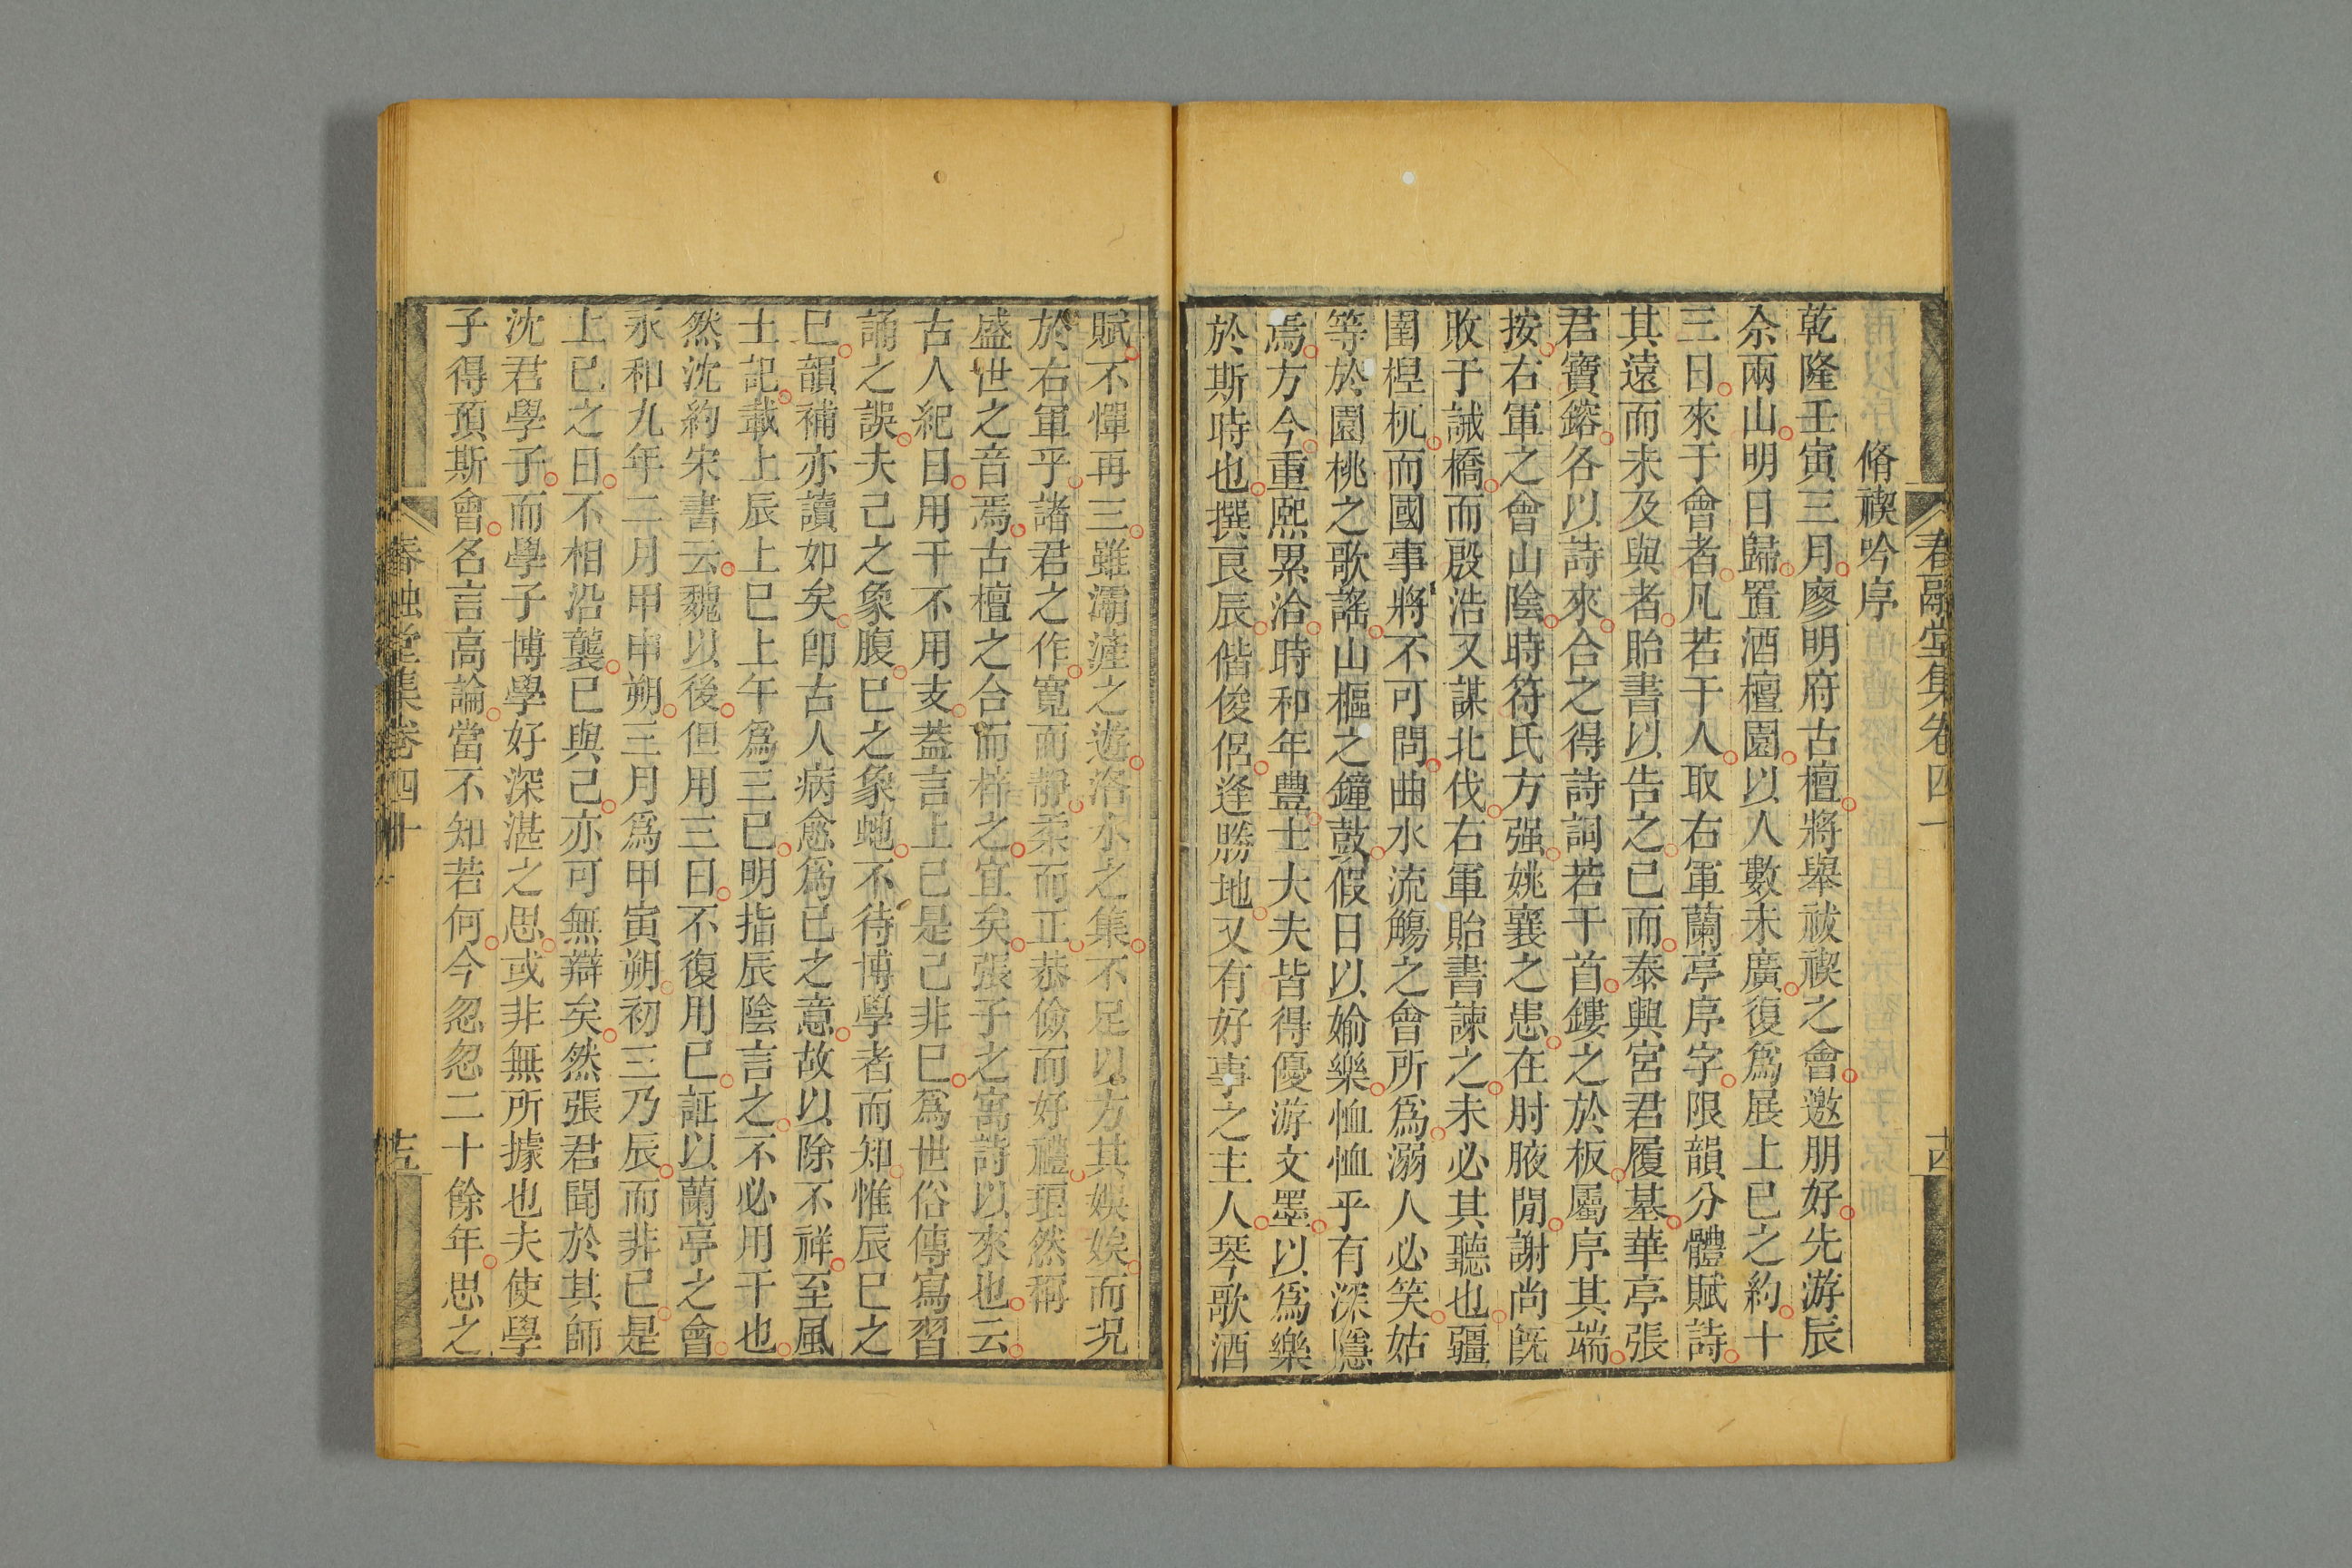 春融堂集卷四十
脩禊吟序
乾隆壬寅三月廖明府古檀將舉祓禊之會邀朋好先游辰
佘兩山明日歸置酒檀園以人數未廣復爲展上巳之約十
三日來于會者凡若干人取右軍蘭亭序字限韻分體賦詩
其遠而未及與者貽書以告之已而泰興宮君履基華亭張
君寶鎔各以詩來合之得詩詞若干首鏤之於板屬序其端
按右軍之會山陰時符氏方强姚襄之患在肘腋閒謝尚旣
敗于誡橋而殷浩又謀北伐右軍貽書諫之未必其聽也疆
圉桯杌而國事將不可問曲水流觴之會所爲溺人必笑姑
等於園桃之歌謠山樞之鐘鼓假日以媮樂恤恤乎有深隱
焉方今重熙累洽時和年豐士大夫皆得優游文墨以爲樂
於斯時也撰良辰偕俊侶逢勝地又有好事之主人琴歌酒
賦不憚再三雖灞滻之遊洛水之集不足以方其娛娭而况
於右軍乎諸君之作寬而靜柔而正恭儉而好禮琅然稱
盛世之音焉古檀之合而梓之宜矣張子之寓詩以來也云
古人紀日用干不用支蓋言上己是己非巳爲世俗傳寫習
誦之誤夫己之象腹巳之象虵不待博學者而知惟辰巳之
巳韻補亦讀如矣卽古人病愈爲已之意故以除不祥至風
土記載上辰上巳上午爲三巳明指辰陰言之不必用干也
然沈約宋書云魏以後但用三日不復用巳証以蘭亭之會
永和九年二月甲申朔三月爲甲寅朔初三乃辰而非巳是
上巳之日不相沿襲巳與己亦可無辯矣然張君聞於其師
沈君學子而學子博學好深湛之思或非無所據也夫使學
子得預斯會名言高論當不知若何今忽忽二十餘年思之
春融堂集卷四十